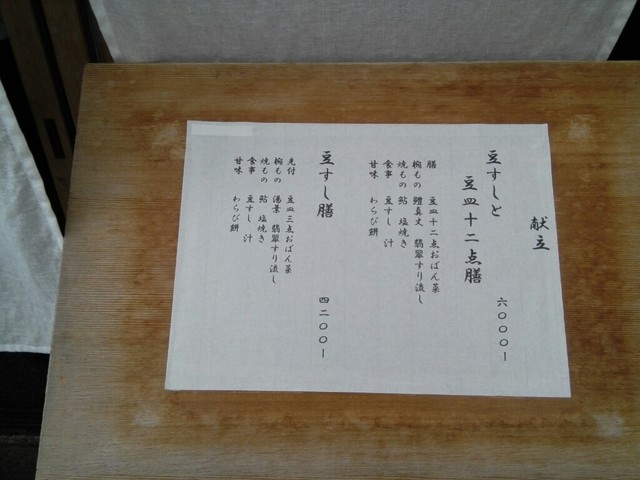 献立
豆すしと
豆皿十二点膳
六〇〇〇ー
膳 豆皿十二点おばん菜
椀もの 鱧真丈 翡翠すり流し
焼もの 鮎 塩焼き
食事 豆すし 汁
甘味 わらび餅
豆すし膳
四二〇〇ー
先付 豆皿三点おばん菜
椀もの 湯葉 翡翠すり流し
焼もの 鮎 塩焼き
食事 豆すし 汁
甘味 わらび餅